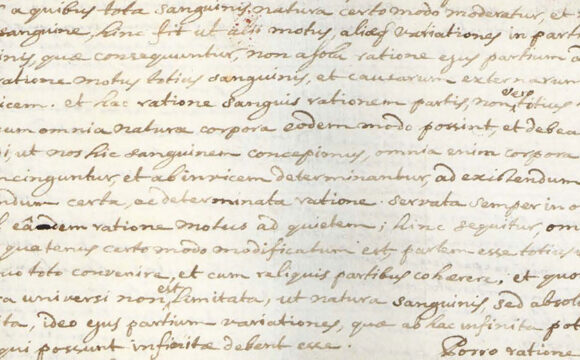 a quibus tota sanguinis natura certo modo moderatur, et
sanguine, hinc fit ut alii motus, aliæq variationes in parti
inis, quæ consequuntur, non a sola ratione ejus partium ad
ratione motus totius sanguinis, et causarum externarum
icem. et hac ratione sanguis rationem partis, non vero totius
cum omnia naturæ corpora eodem modo possint, et debea
i, ut nos hic sanguinem concepimus, omnia enim corpora
ncinguntur, et ab invicem determinantur, ad existendum
ndum certa, ac determinata ratione servata semper in o
eâdem ratione motus ad quietem; hinc sequitur, om
quatenus certo modo modificatum est, partem esse totius
uo toto convenire, et cum reliquis partibus cohærere, et quo
ra universi non est limitata, ut natura sanguinis sed absol
ita, ideo ejus partium variationes, quæ ab hac infinita pot
qui possunt infinitæ debent esse. Porro ratione